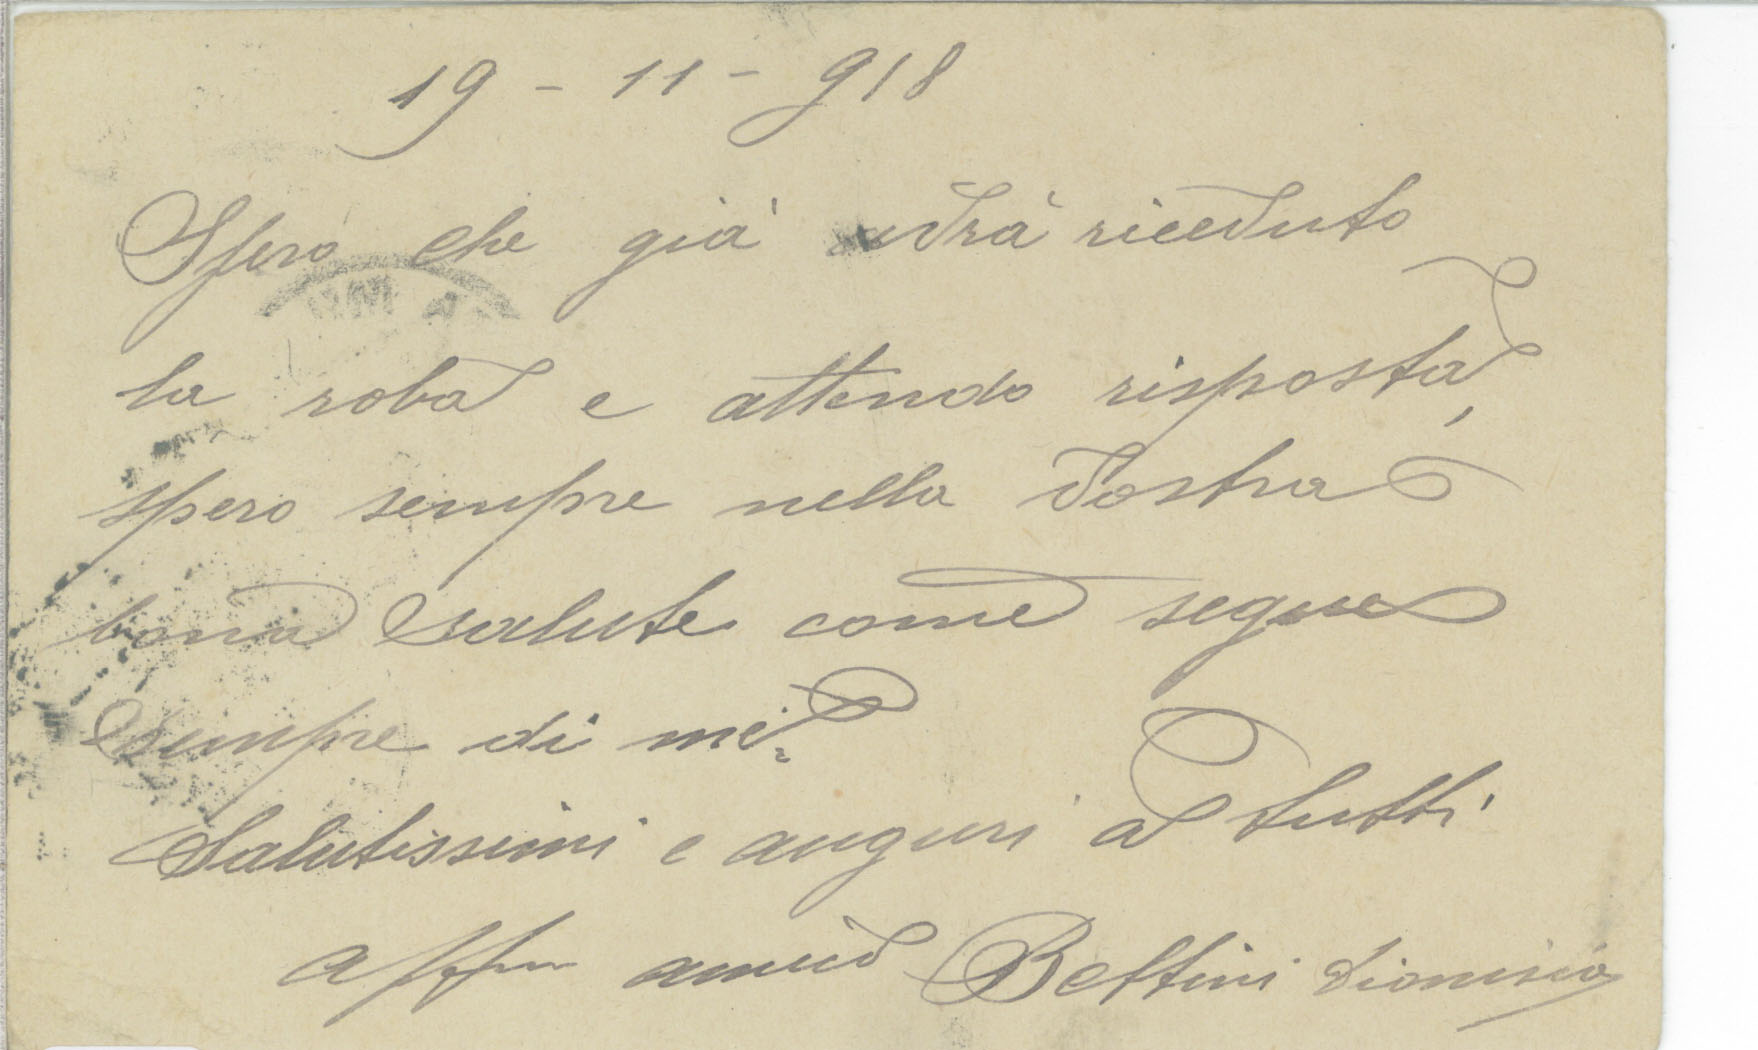 19 - 11 - 918
Spero che già avrà ricevuto
la roba e attendo risposta,
spero sempre nella vostra
bona salute come segue
sempre di me.
Salutissimi e auguri a tutti
Aff.mo amico Bettini Dionisio